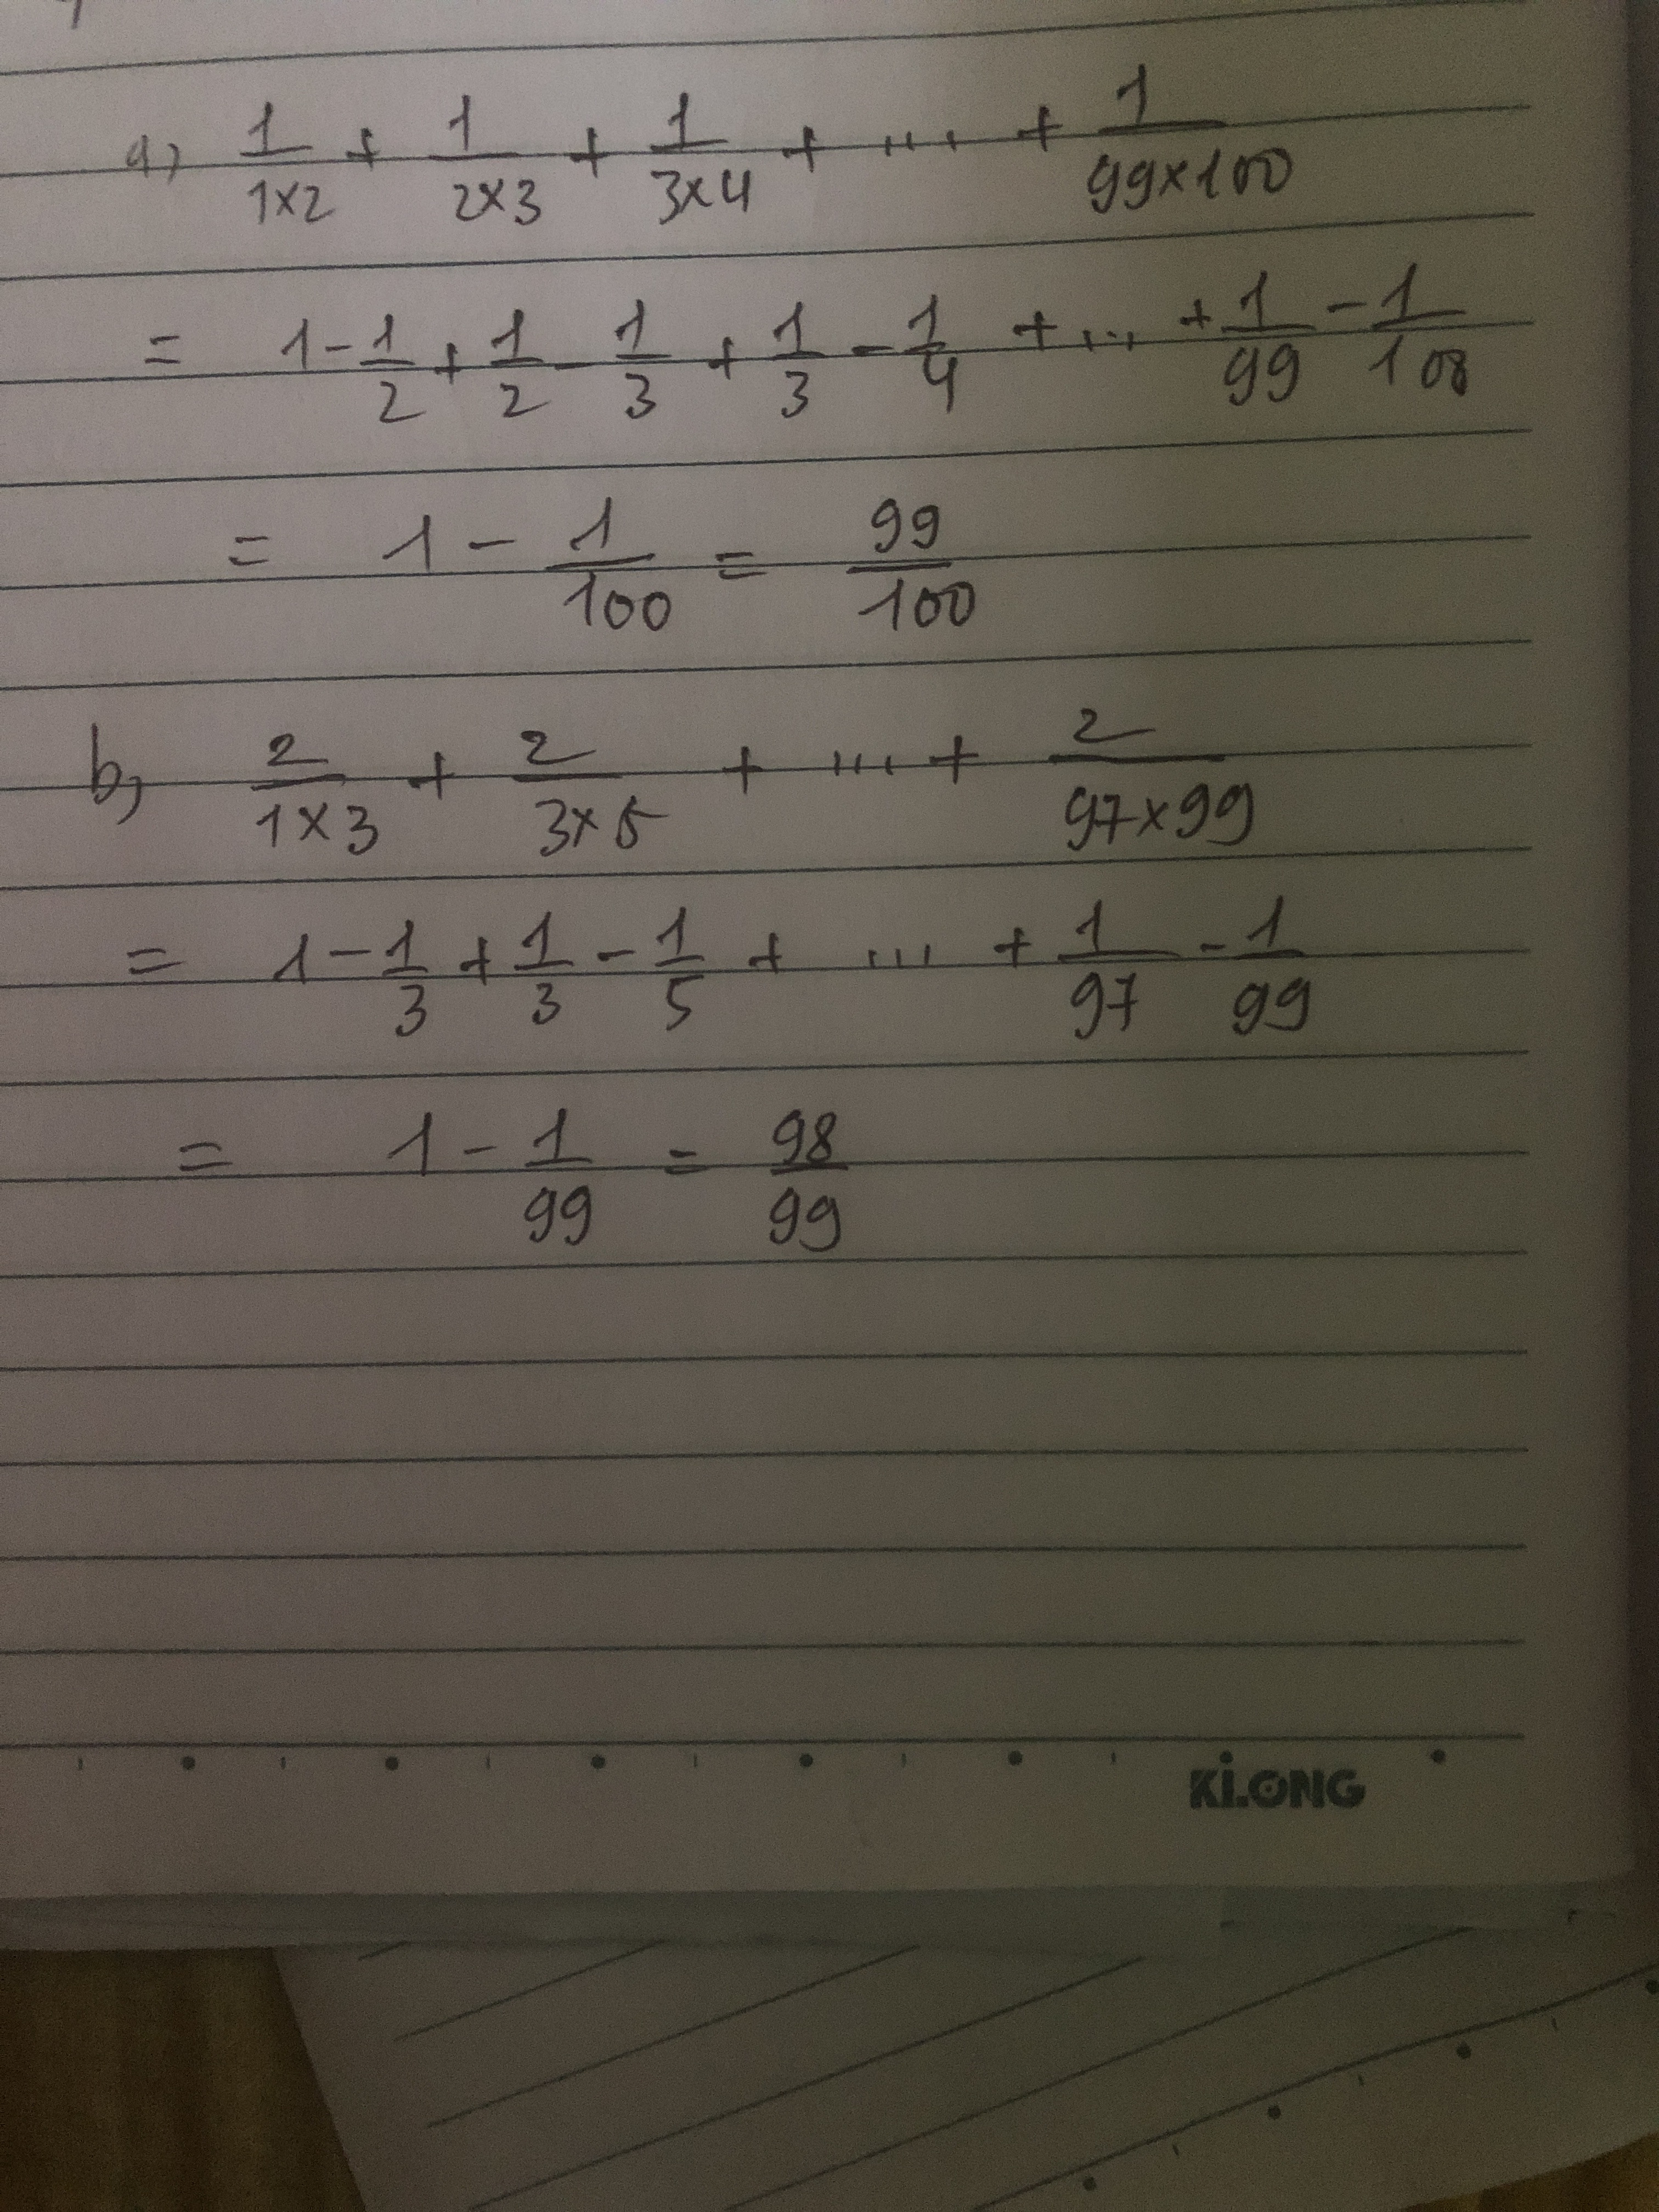 a, 1/1×2 + 1/2×3 + 1/3×4 + ... + 1/99×100
= 1 - 1/2 + 1/2 - 1/3 + 1/3 - 1/4 + ... + 1/99 - 1/100
= 1 - 1/100 = 99/100
b, 2/1×3 + 2/3×5 + ... + 2/97×99
= 1 - 1/3 + 1/3 - 1/5 + ... + 1/97 - 1/99
= 1 - 1/99 = 98/99
KLONG